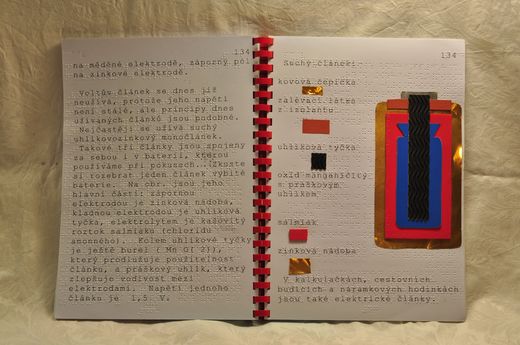 134
na měděné elektrodě, záporný pól
na zinkové elektrodě.
Voltův článek se dnes již
neužívá, protože jeho napětí
není stálé, ale principy dnes
užívaných článků jsou podobné.
Nejčastěji se užívá suchý
uhlíkovozinkový monočlánek.
Takové tři články jsou spojeny
za sebou i v baterii, kterou
používáme při pokusech. Zkuste
si rozebrat jeden článek vybité
baterie. Na obr. jsou jeho
hlavní části: zápornou
elektrodou je zinková nádoba,
kladnou elektrodou je uhlíková
tyčka, elektrolytem je kašovitý
roztok salmiaku (chloridu
amonného). Kolem uhlíkové tyčky
je ještě burel ( Mn O( 2)),
který prodlužuje použitelnost
článku, a práškový uhlík, který
zlepšuje vodivost mezi
elektrodami. Napětí jednoho
článku je 1,5 V.
134
Suchý článek:
kovová čepička
zalévací látka
z izolantu
uhlíková tyčka
oxid manganičitý
s práškovým
uhlíkem
salmiak
zinková nádoba
V kalkulačkách, cestovních
budících a náramkových hodinkách
jsou také elektrické články.